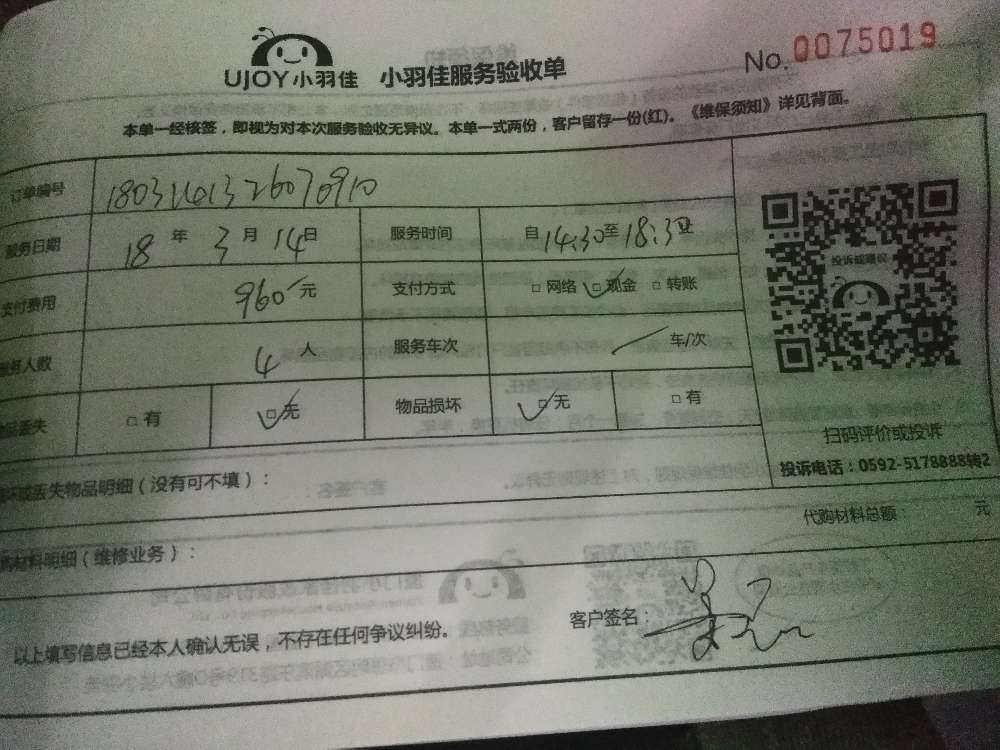 UJOY小羽佳 小羽佳服务验收单 No. 0075019
本单一经核签，即视为对本次服务验收无异议。本单一式两份，客户留存一份(红)。《维保须知》详见背面。
订单编号
服务日期 18 年 3 月 14 日 服务时间 自 14:30 至 18:30
支付费用 960 元 支付方式 □ 网络 □ 现金 □ 转账
服务人数 4 人 服务车次 车/次
物品丢失 □ 有 □ 无 物品损坏 □ 无 □ 有
投诉或建议
扫码评价或投诉
投诉电话：0592-5178888转2
损坏或丢失物品明细（没有可不填）：
代购材料总额： 元
代购材料明细（维修业务）：
以上填写信息已经本人确认无误，不存在任何争议纠纷。
客户签名：